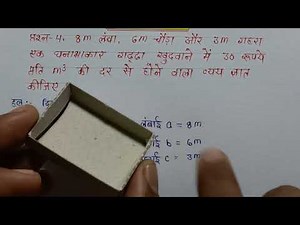 प्रश्न-4. 8m लंबा, 6m चौड़ा और 3m गहरा
एक घनाभाकार गड्ढा खुदवाने में 30 रूपये
प्रति m³ की दर से होने वाला व्यय ज्ञात
कीजिए
हल:-
लंबाई a = 8m
b = 6m
c = 3m